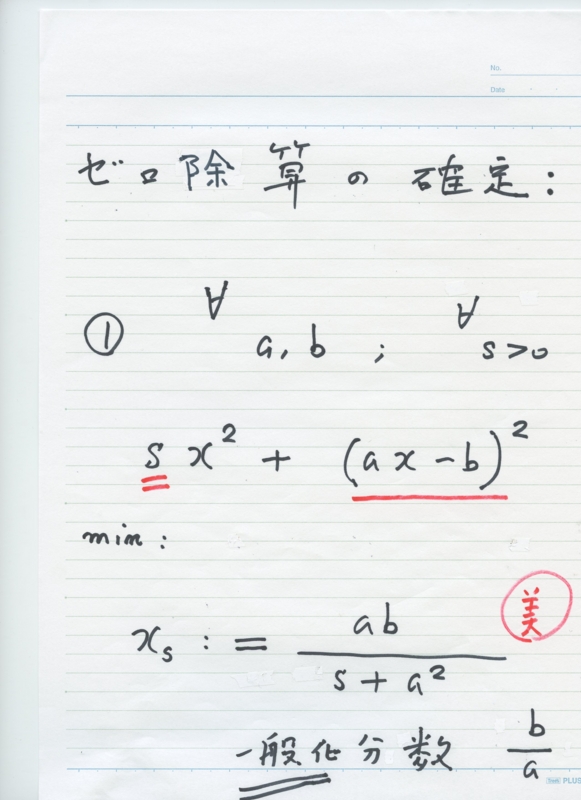 No.
Date
ゼロ除算の確定:
① ∀ a, b ; ∀ s>0
s x² + (ax-b)²
min:
x_s := ab / (s + a²) 美
一般化分数 b/a
PLUS